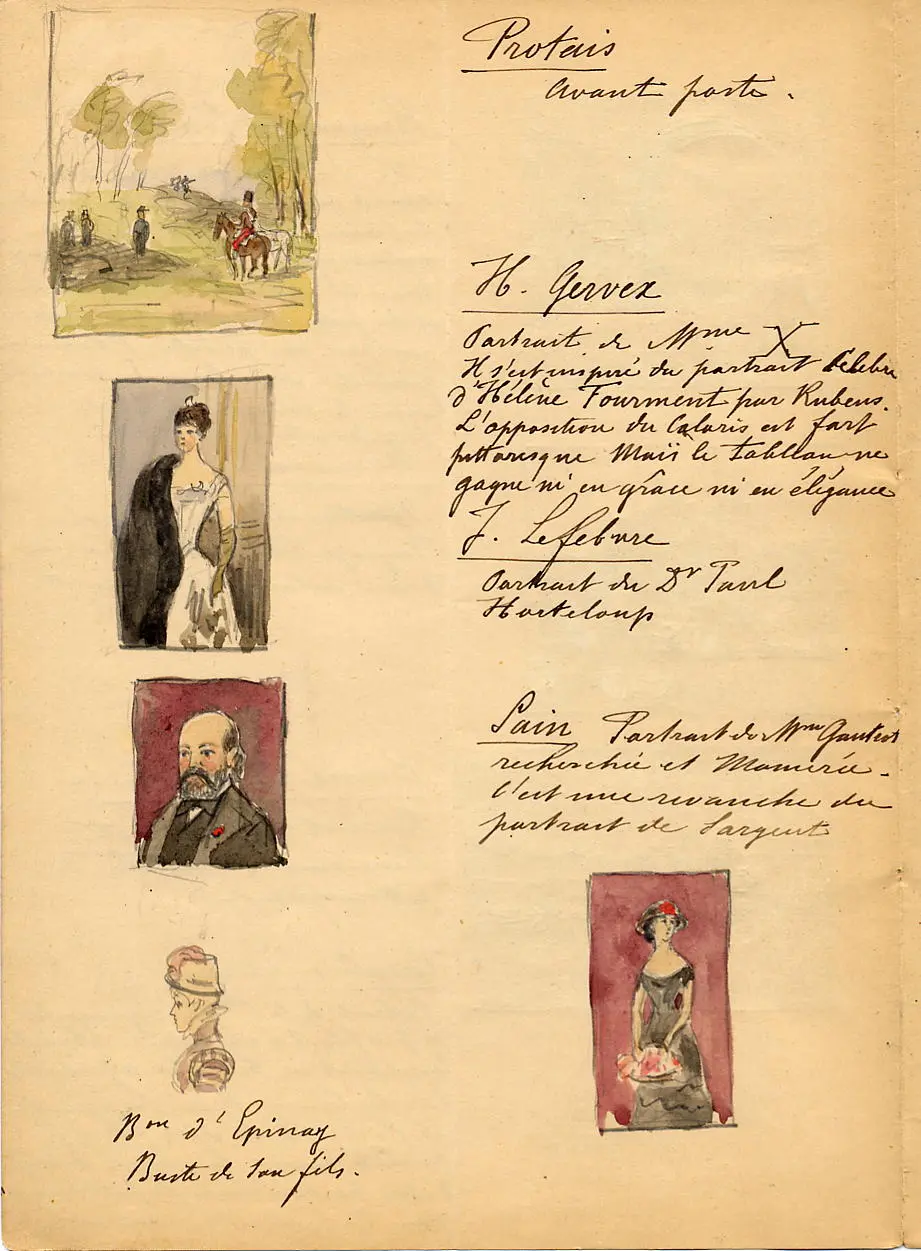 Protais
Avant poste.
H. Gervex
Portrait de Mme X
Il s'est inspiré du portrait célèbre
d'Hélène Fourment par Rubens.
L'opposition du Coloris est fort
pittoresque Mais le tableau ne
gagne ni en grâce ni en élégance
J. Lefebvre
Portrait du Dr Paul
Horteloup
Sain Portrait de Mme Gautrot
recherchée et Momerée.
C'est une revanche du
portrait de Sargent
Bon d'Epinay
Buste de son fils.